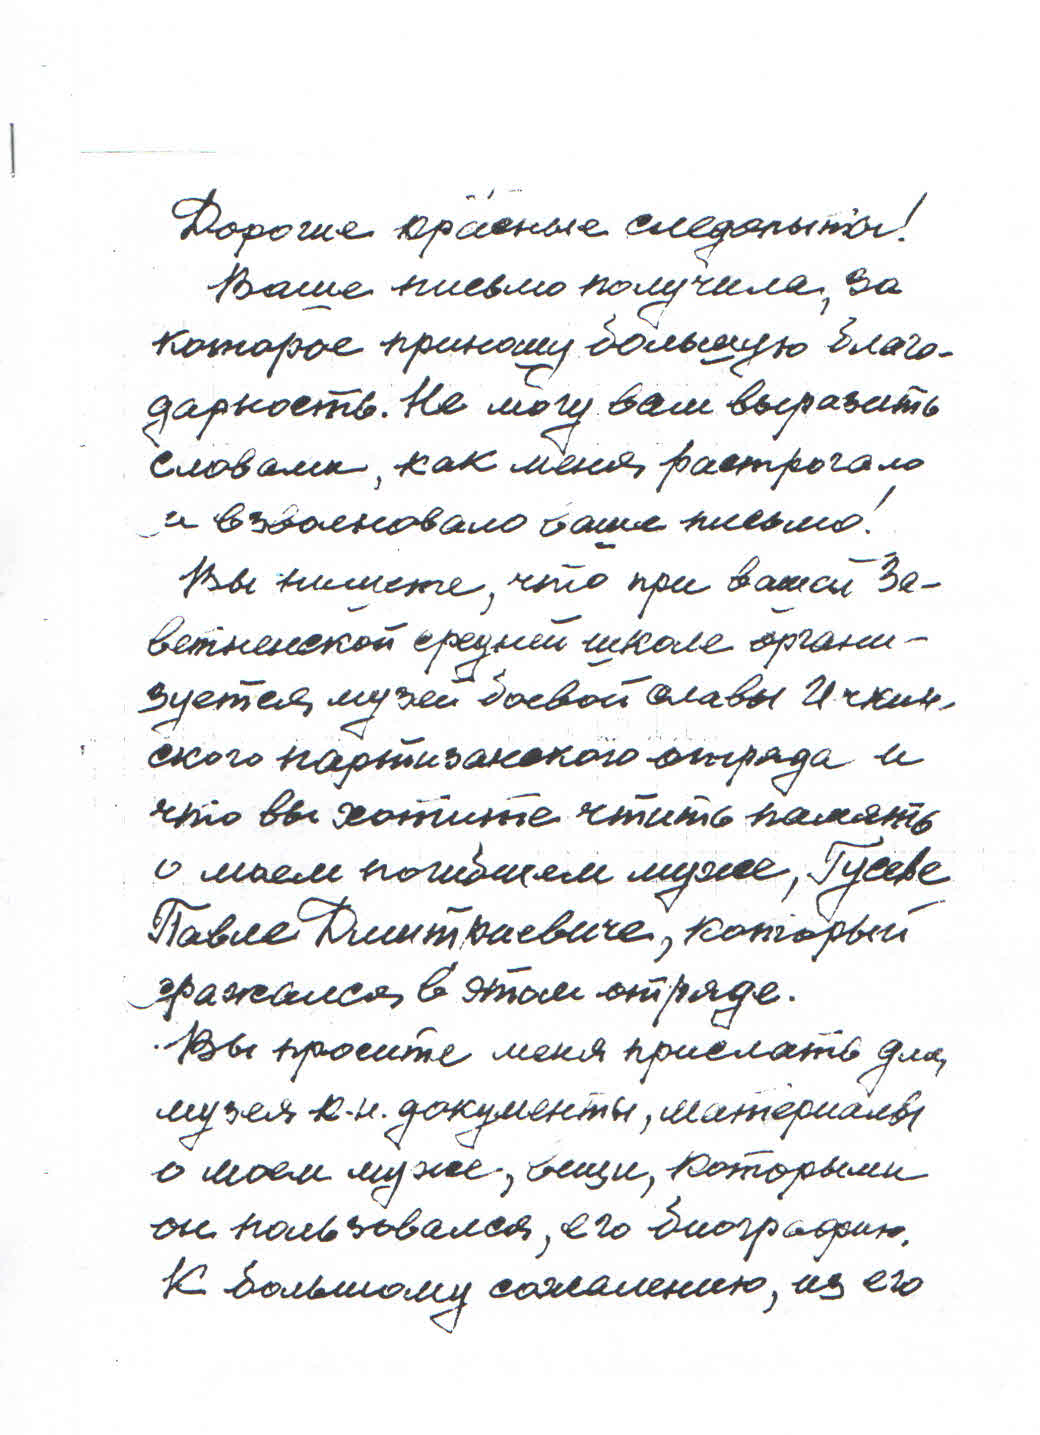 Дорогие красные следопыты!
Ваше письмо получила, за
которое приношу большую благо-
дарность. Не могу вам выразить
словами, как меня растрогало
и взволновало ваше письмо!
Вы пишете, что при вашей За-
ветненской средней школе органи-
зуется музей боевой славы Ичкин-
ского партизанского отряда и
что вы хотите чтить память
о моем погибшем муже, Гусеве
Павле Дмитриевиче, который
сражался в этом отряде.
Вы просите меня прислать для
музея к.-н. документы, материалы
о моем муже, вещи, которыми
он пользовался, его биографию.
К большому сожалению, из его